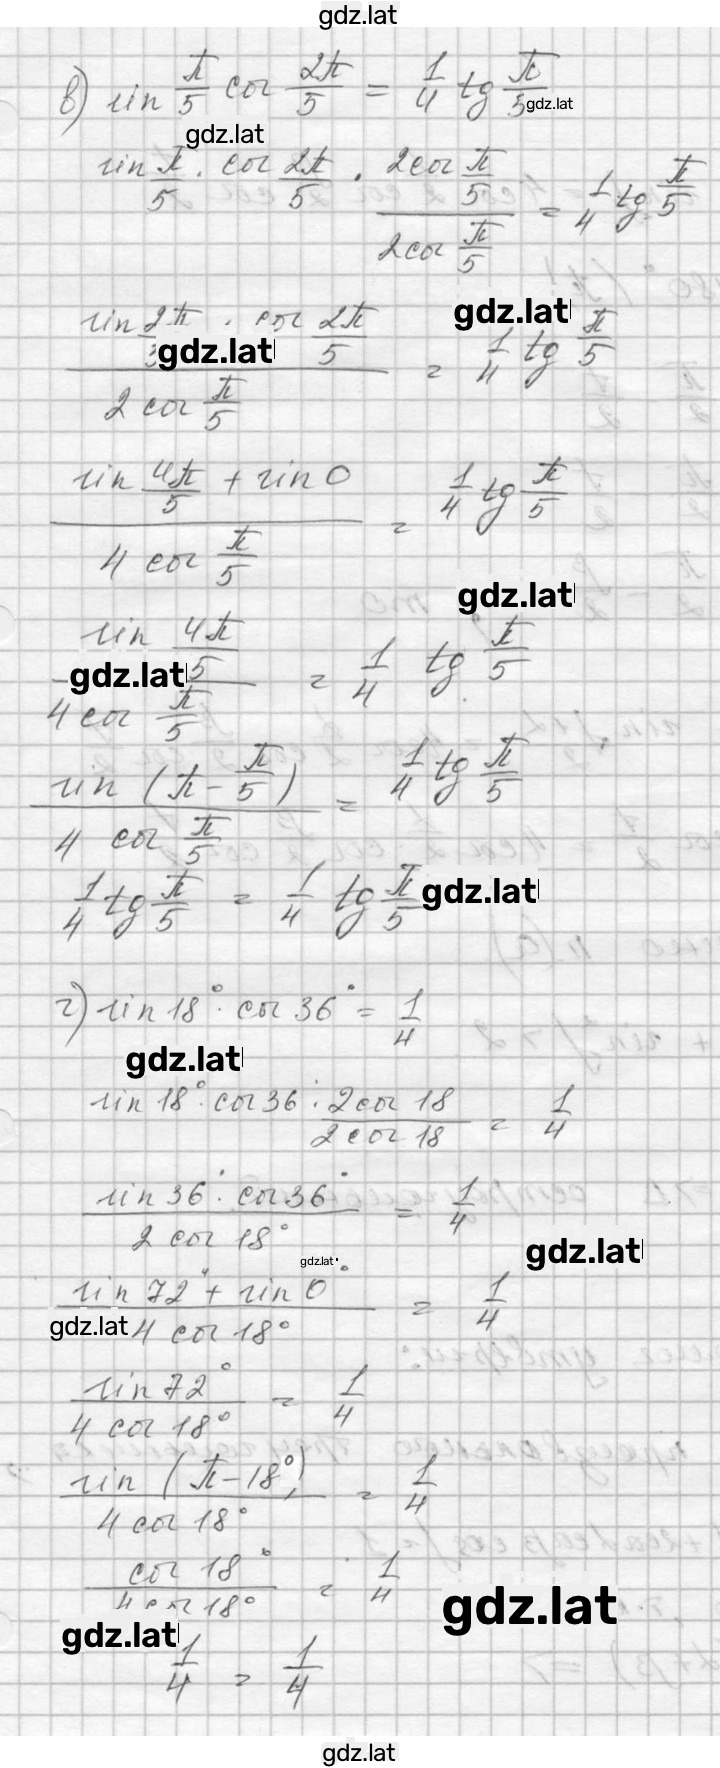 gdz.lat
в) sin π/5 cos 2π/5 = 1/4 tg π/5
gdz.lat
gdz.lat
sin π/5 · cos 2π/5 · 2cos π/5 / 2cos π/5 = 1/4 tg π/5
gdz.lat
sin 2π/5 · cos 2π/5 / 2 cos π/5 = 1/4 tg π/5
gdz.lat
sin 4π/5 + sin 0 / 4 cos π/5 = 1/4 tg π/5
gdz.lat
sin 4π/5 / 4 cos π/5 = 1/4 tg π/5
gdz.lat
sin (π - π/5) / 4 cos π/5 = 1/4 tg π/5
1/4 tg π/5 = 1/4 tg π/5
gdz.lat
г) sin 18° · cos 36° = 1/4
gdz.lat
sin 18° · cos 36 · 2 cos 18 / 2 cos 18 = 1/4
sin 36° · cos 36° / 2 cos 18° = 1/4
gdz.lat
gdz.lat
sin 72° + sin 0° / 4 cos 18° = 1/4
gdz.lat
sin 72° / 4 cos 18° = 1/4
sin (π - 18°) / 4 cos 18° = 1/4
cos 18° / 4 cos 18° = 1/4
gdz.lat
gdz.lat
1/4 = 1/4
gdz.lat